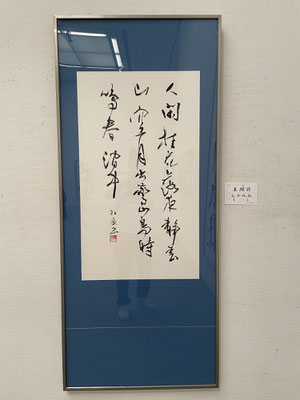 人閑桂花落夜靜春
山空月出驚山鳥時
鳴春澗中
王維詩